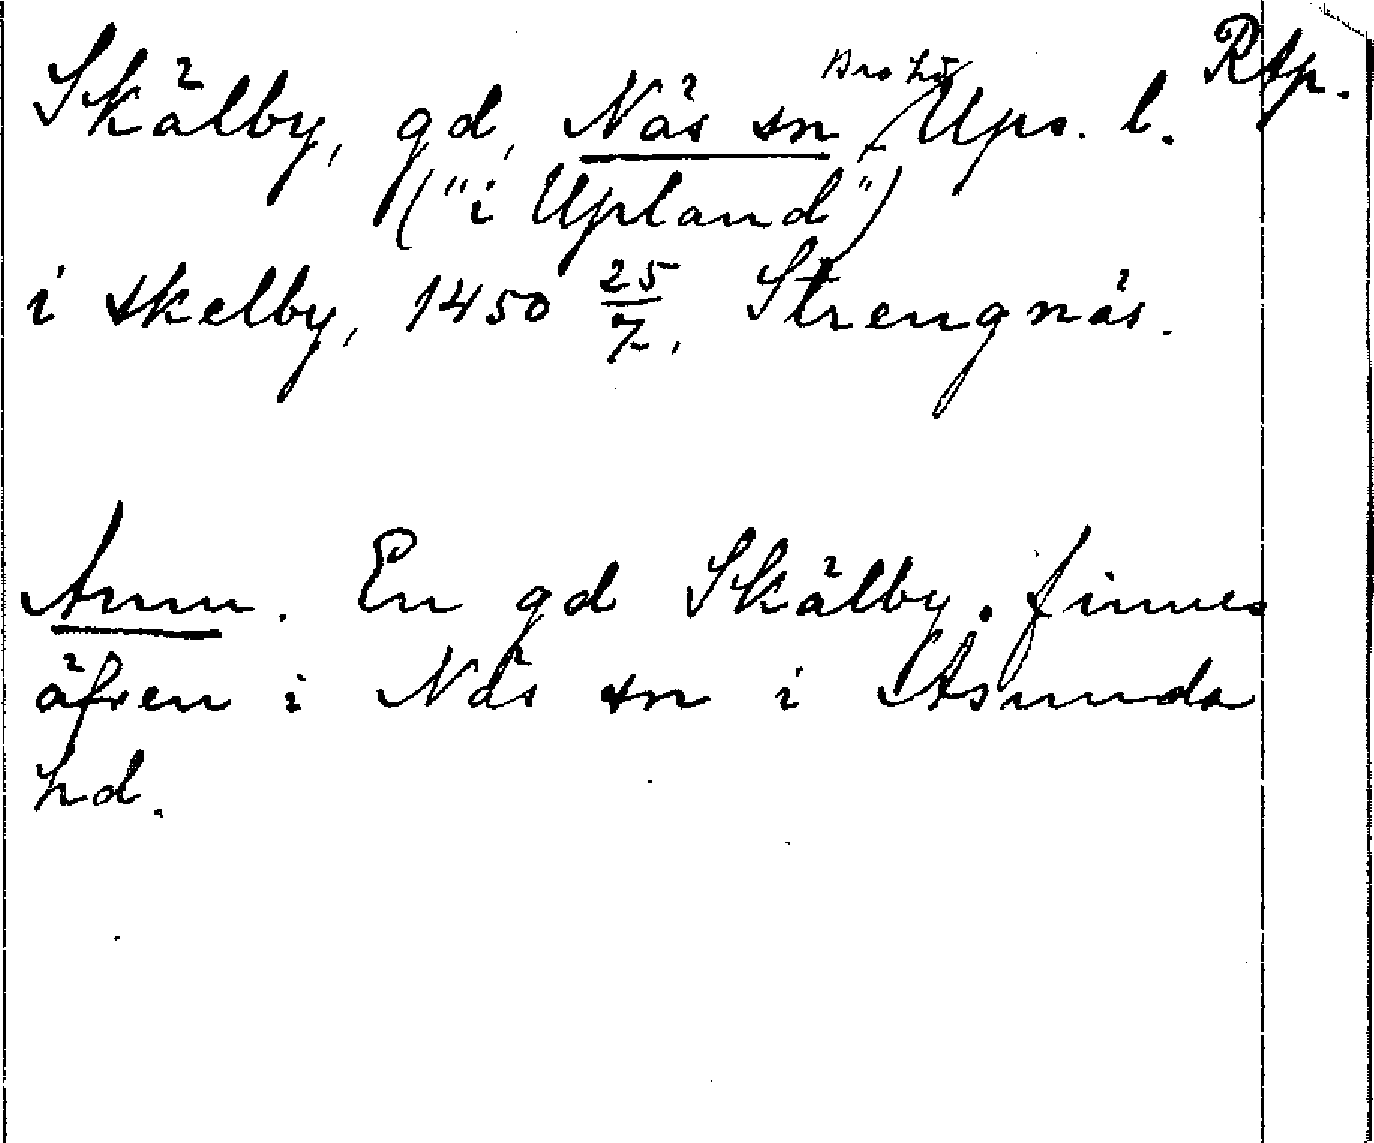 Rtp.
Skälby, gd, Näs sn, Bro hd Ups. l.
("i Upland")
i skelby, 1450 25/7, Strengnäs.
Anm. En gd Skälby finnes
äfven i Näs sn i Åsunda
hd.